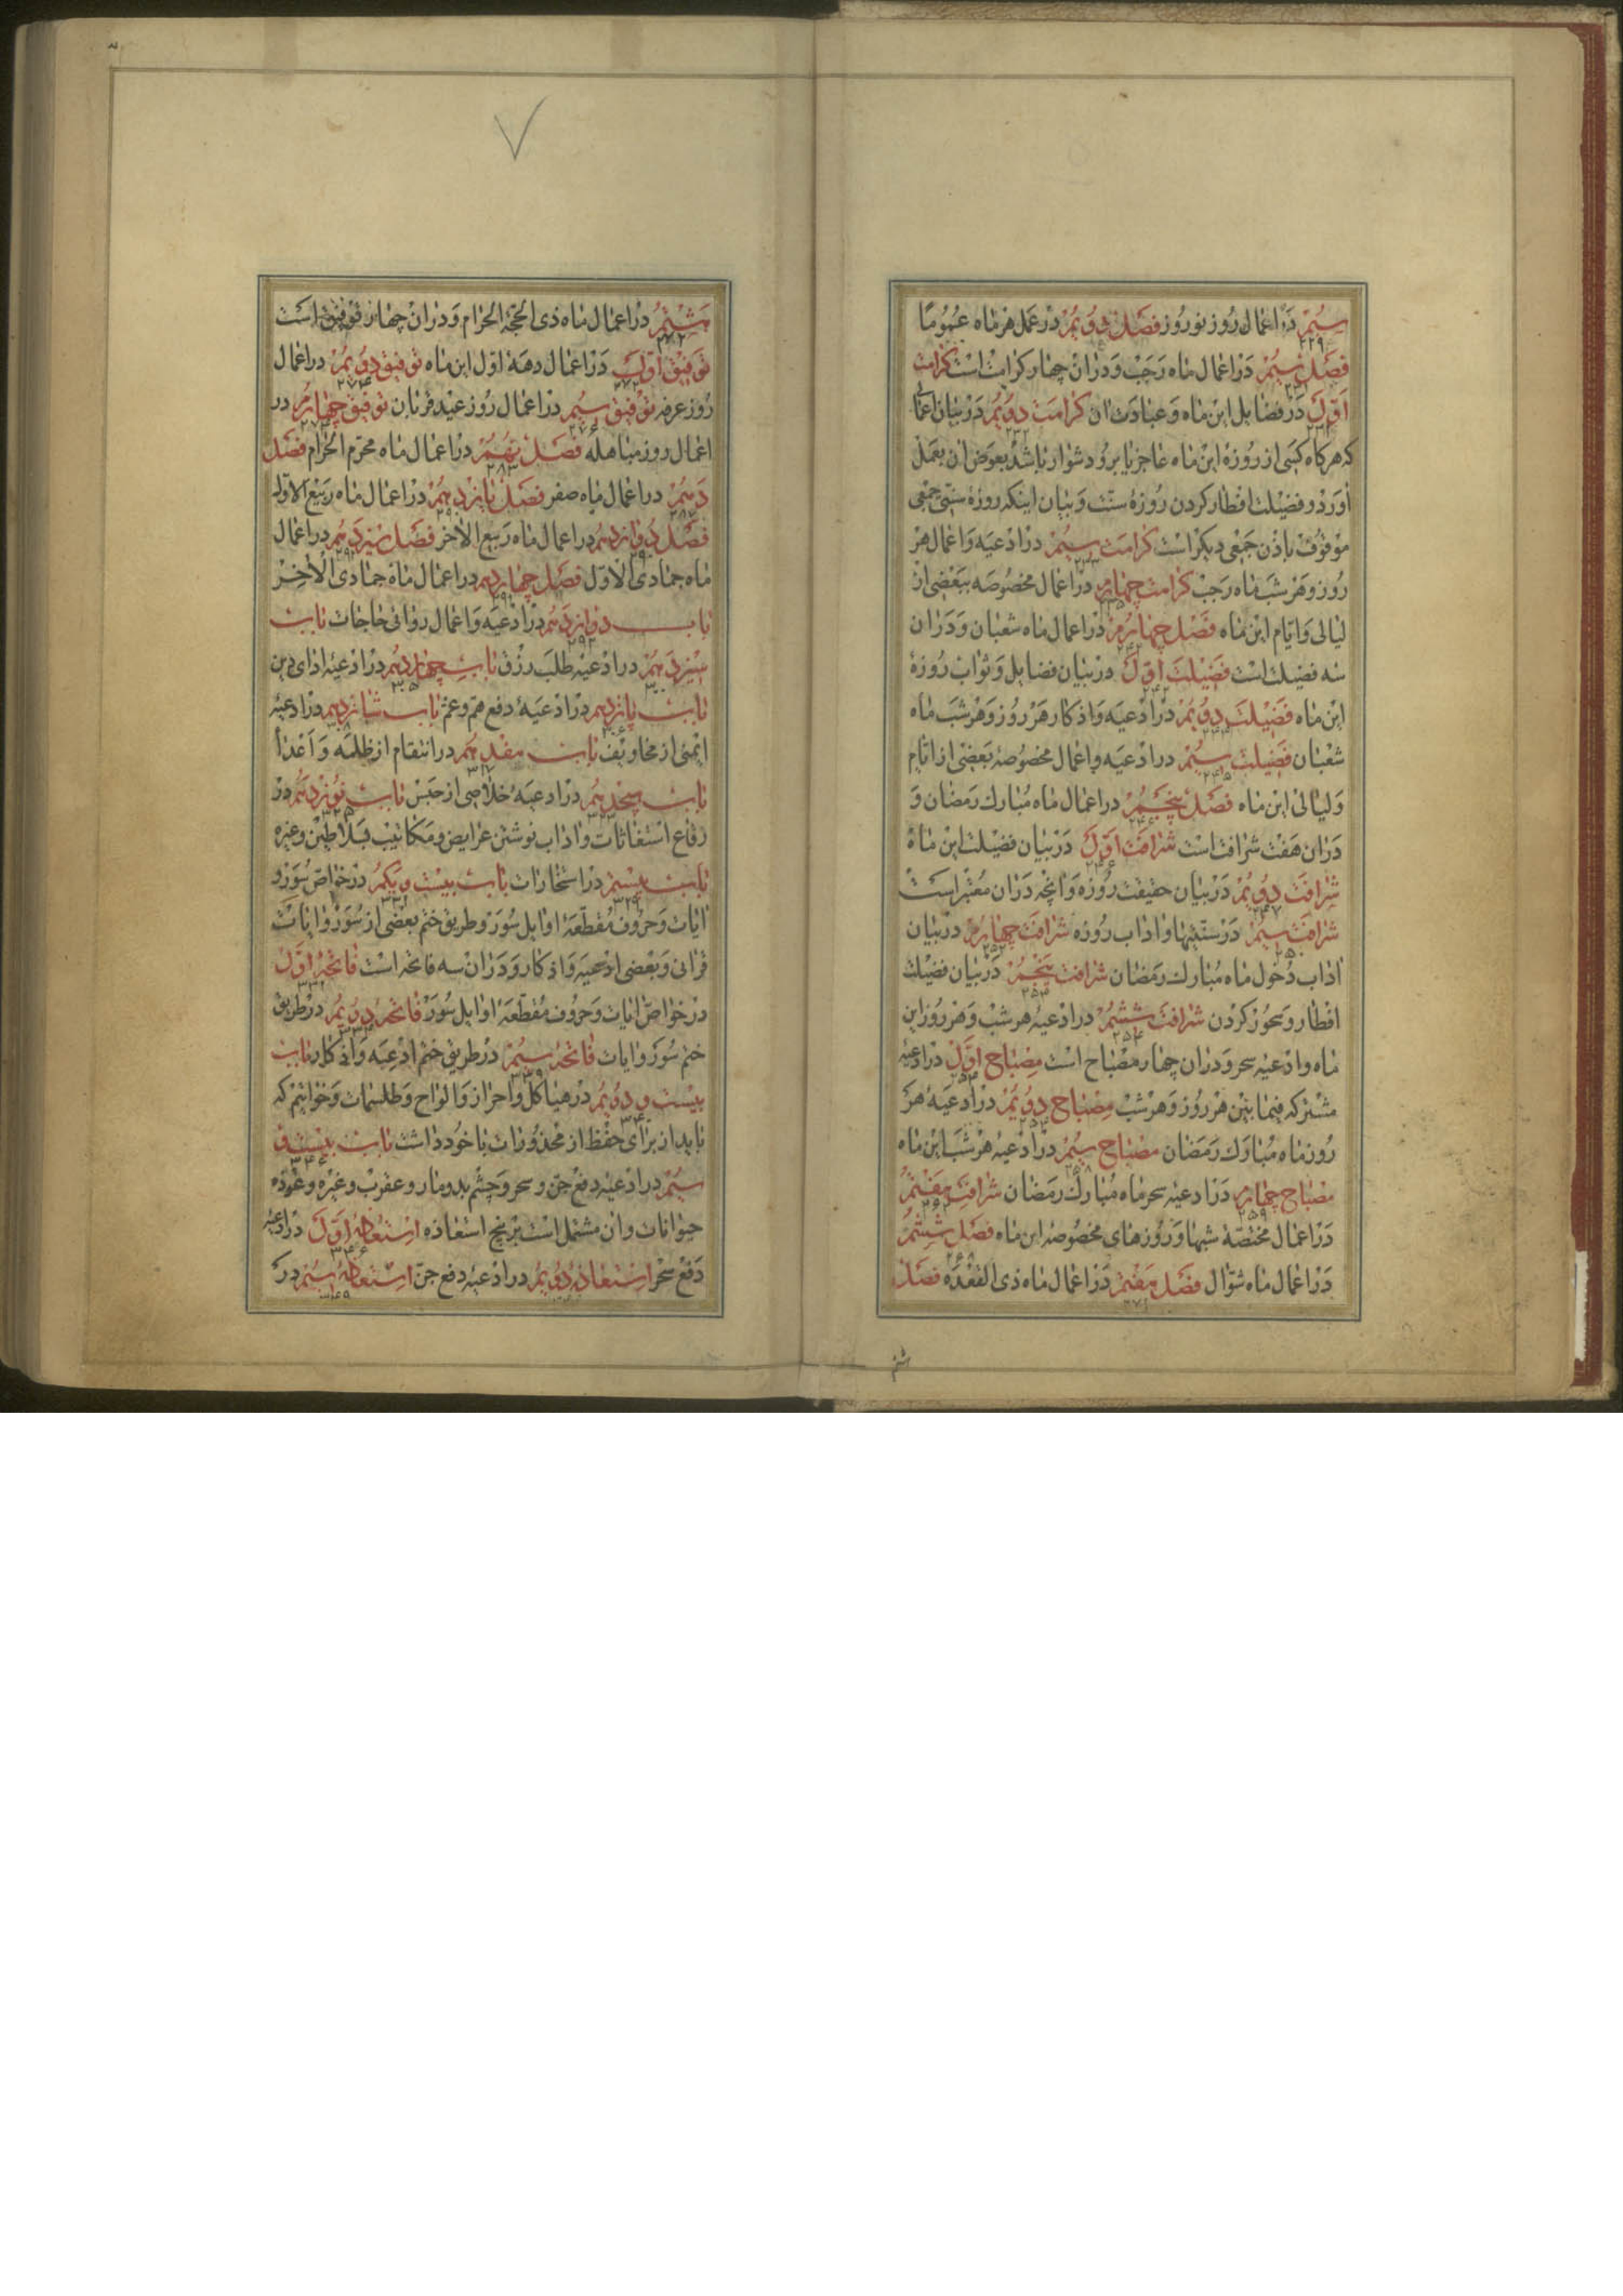 سیم در اعمال روز نوروز فصل دویم در عمل هر ماه عموما
۲۲۹
فصل سیم در اعمال ماه رجب و دران چهار کرامت است کرامت
۲۳۱
اول در فضایل این ماه و عبادت ان کرامت دویم در بیان اعمالی
۲۳۲
که هر کاه کسی از روزه این ماه عاجز یا بر و دشوار باشد بعوض ان بعمل
اورد و فضیلت افطار کردن روزه سنت و بیان اینکه روزه سنتی جمعی
موقوف باذن جمعی دیکر است کرامت سیم در ادعیه و اعمال هر
۲۳۳
روز و هر شب ماه رجب کرامت چهارم در اعمال مخصوصه ببعضی از
۲۳۵
لیالی و ایام این ماه فصل چهارم در اعمال ماه شعبان و دران
۲۴۲
سه فضیلت است فضیلت اول در بیان فضایل و ثواب روزه
۲۴۲
این ماه فضیلت دویم در ادعیه و اذکار هر روز و هر شب ماه
شعبان فضیلت سیم در ادعیه و اعمال مخصوصه بعضی از ایام
۲۴۵
و لیالی این ماه فصل پنجم در اعمال ماه مبارک رمضان و
۲۴۶
دران هفت شرافت است شرافت اول در بیان فضیلت این ماه
۲۴۶
شرافت دویم در بیان حقیقت روزه و انچه دران معتبر است
۲۴۷
شرافت سیم در سنتیها و اداب روزه شرافت چهارم در بیان
۲۵۰ ۲۵۲
اداب دخول ماه مبارک رمضان شرافت پنجم در بیان فضیلت
۲۵۳
افطار و سحور کردن شرافت ششم در ادعیه هر شب و هر روز این
۲۵۴
ماه و ادعیه سحر و دران چهار مصباح است مصباح اول در ادعیه
مشترکه فیما بین هر روز و هر شب مصباح دویم در ادعیه هر
روز ماه مبارک رمضان مصباح سیم در ادعیه هر شب این ماه
۲۵۸
مصباح چهارم در ادعیه سحر ماه مبارک رمضان شرافت هفتم
۲۵۹
در اعمال مختصه شبها و روزهای مخصوصه این ماه فصل ششم
۲۶۸
در اعمال ماه شوال فصل هفتم در اعمال ماه ذی القعده فصل
۲۷۱
هشتم در اعمال ماه ذی الحجة الحرام و دران چهار توفیق است
۲۷۲
توفیق اول در اعمال دهه اول این ماه توفیق دویم در اعمال
۲۷۲ ۲۷۴
روز عرفه توفیق سیم در اعمال روز عید قربان توفیق چهارم در
۲۷۶
اعمال روز مباهله فصل نهم در اعمال ماه محرم الحرام فصل
۲۸۳
دهم در اعمال ماه صفر فصل یازدهم در اعمال ماه ربیع الاول
۲۸۷
فصل دوازدهم در اعمال ماه ربیع الاخر فصل سیزدهم در اعمال
ماه جمادی الاول فصل چهاردهم در اعمال ماه جمادی الاخر
باب دوازدهم در ادعیه و اعمال روائی حاجات باب
۲۹۲
سیزدهم در ادعیه طلب رزق باب چهاردهم در ادعیه ادای دین
۳۰۰ ۳۰۵
باب پانزدهم در ادعیه دفع هم و غم باب شانزدهم در ادعیه
۳۰۶ ۳۰۸
ایمنی از مخاویف باب هفدهم در انتقام از ظلمه و اعدا
۳۱۷
باب هیجدهم در ادعیه خلاصی از حبس باب نوزدهم در
۳۲۳ ۳۲۵
رقاع استغاثات و اداب نوشتن عرایض و مکاتیب سلاطین و غیره
باب بیستم در استخارات باب بیست و یکم در خواص سور و
۳۲۹ ۳۳۱
ایات و حروف مقطعه اوایل سور و طریق ختم بعضی از سور و ایات
قرانی و بعضی ادعیه و اذکار و دران سه فاتحه است فاتحه اول
۳۳۱
در خواص ایات و حروف مقطعه اوایل سور فاتحه دویم در طریق
ختم سور و ایات فاتحه سیم در طریق ختم ادعیه و اذکار باب
۳۳۹
بیست و دویم در هیاکل و احراز و الواح و طلسمات و خواتیم که
باید از برای حفظ از محذورات با خود داشت باب بیست و
۳۴۶
سیم در ادعیه دفع جن و سحر و چشم بد و مار و عقرب و غیره و عوذه
حیوانات و ان مشتمل است بر پنج استعاذه استعاذه اول در ادعیه
۳۴۶
دفع سحر استعاذه دویم در ادعیه دفع جن استعاذه سیم در
۳۴۹